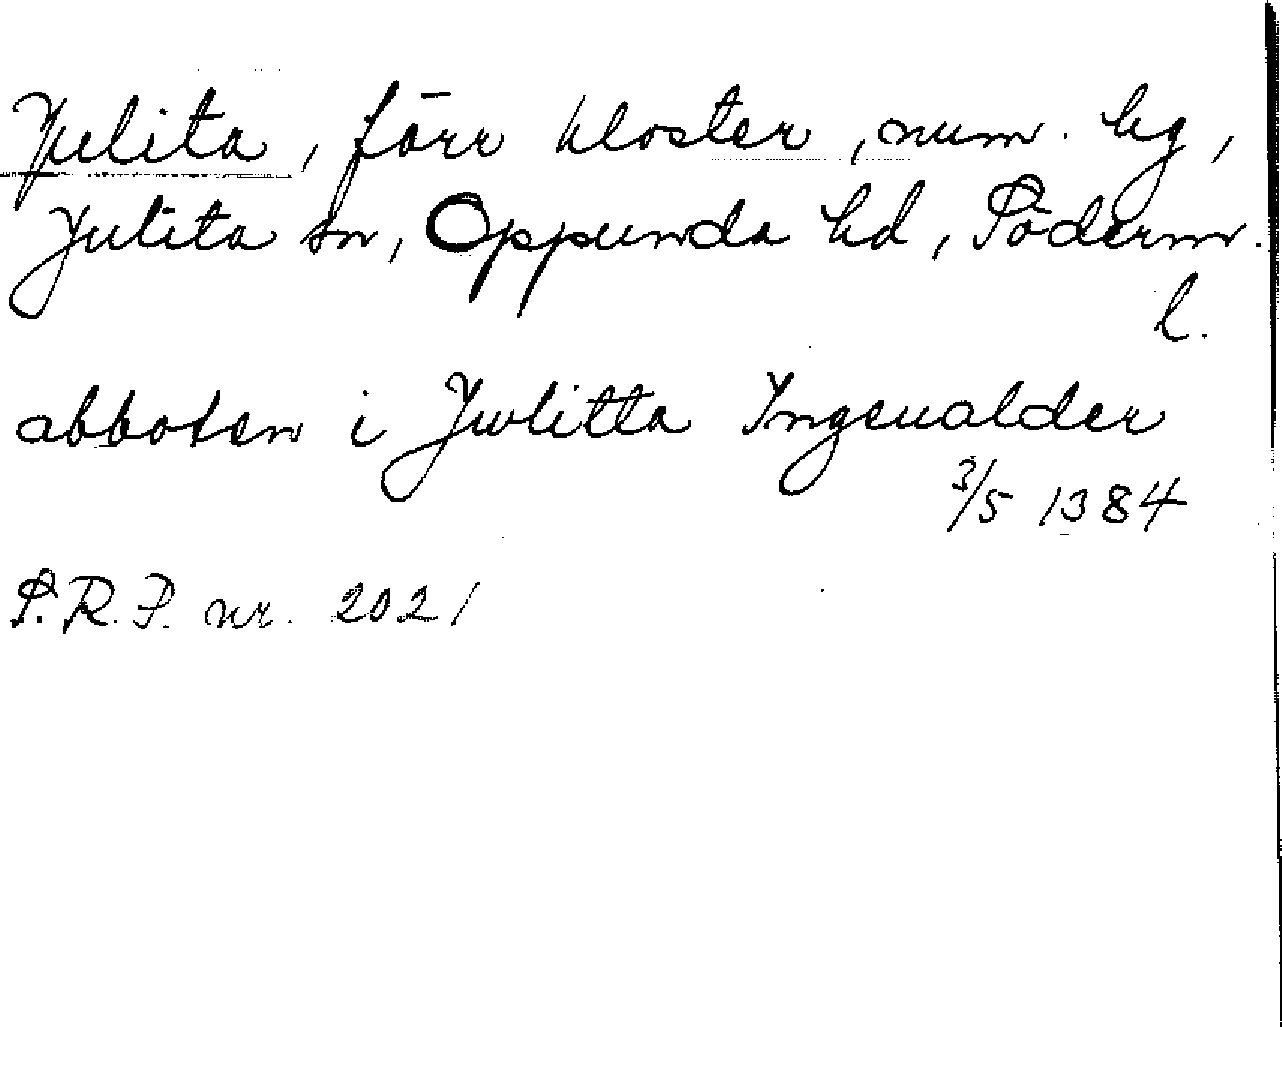 Julita, förr kloster, num. hg,
Julita sn, Oppunda hd, Söderm.
l.
abboten i Jwlitta Ingeualder
3/5 1384
S.R.P. nr. 2021